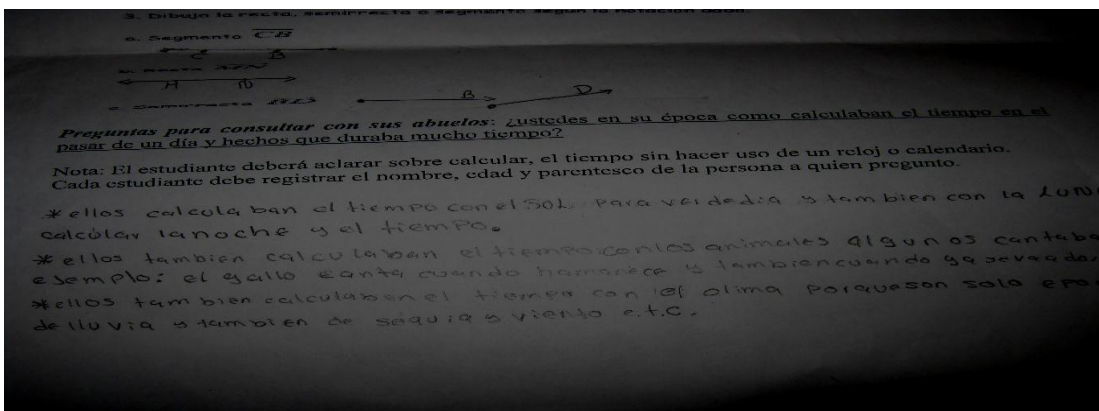 3. Dibuja la recta, semirrecta o segmento según la notación dada.
a. Segmento CB
C B
b. Recta
M N
c. Semirrecta
B D
Preguntas para consultar con sus abuelos: ¿ustedes en su época como calculaban el tiempo en el
pasar de un día y hechos que duraba mucho tiempo?
Nota: El estudiante deberá aclarar sobre calcular, el tiempo sin hacer uso de un reloj o calendario.
Cada estudiante debe registrar el nombre, edad y parentesco de la persona a quien pregunto.
* ellos calculaban el tiempo con el SOL para ver de dia y tambien con la LUN
calcolar la noche y el tiempo.
* ellos tambien calculaban el tiempo con los animales algunos cantaba
ejemplo: el gallo canta cuando hamanece y tambien cuando ya se va a
* ellos tambien calculaban el tiempo con el clima porque son solo epo
de lluvia y tambien de sequia y viento e.t.c.